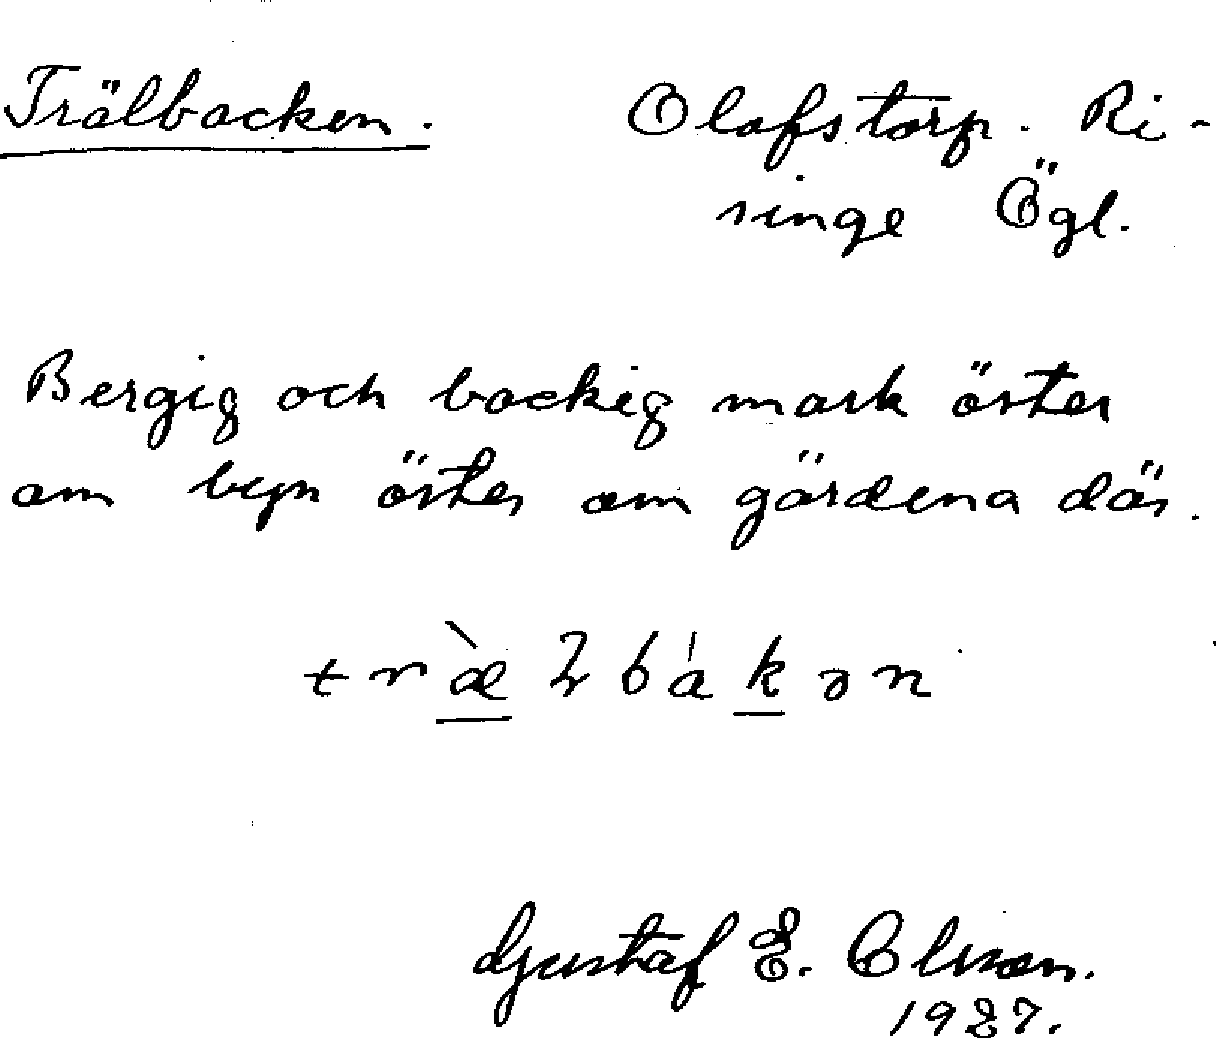 Trälbacken. Olofstorp. Ri-
singe Ögl.
Bergig och backig mark öster
om byn öster om gärdena där.
træ̀lbákən
Gustaf E. Olsson.
1927.